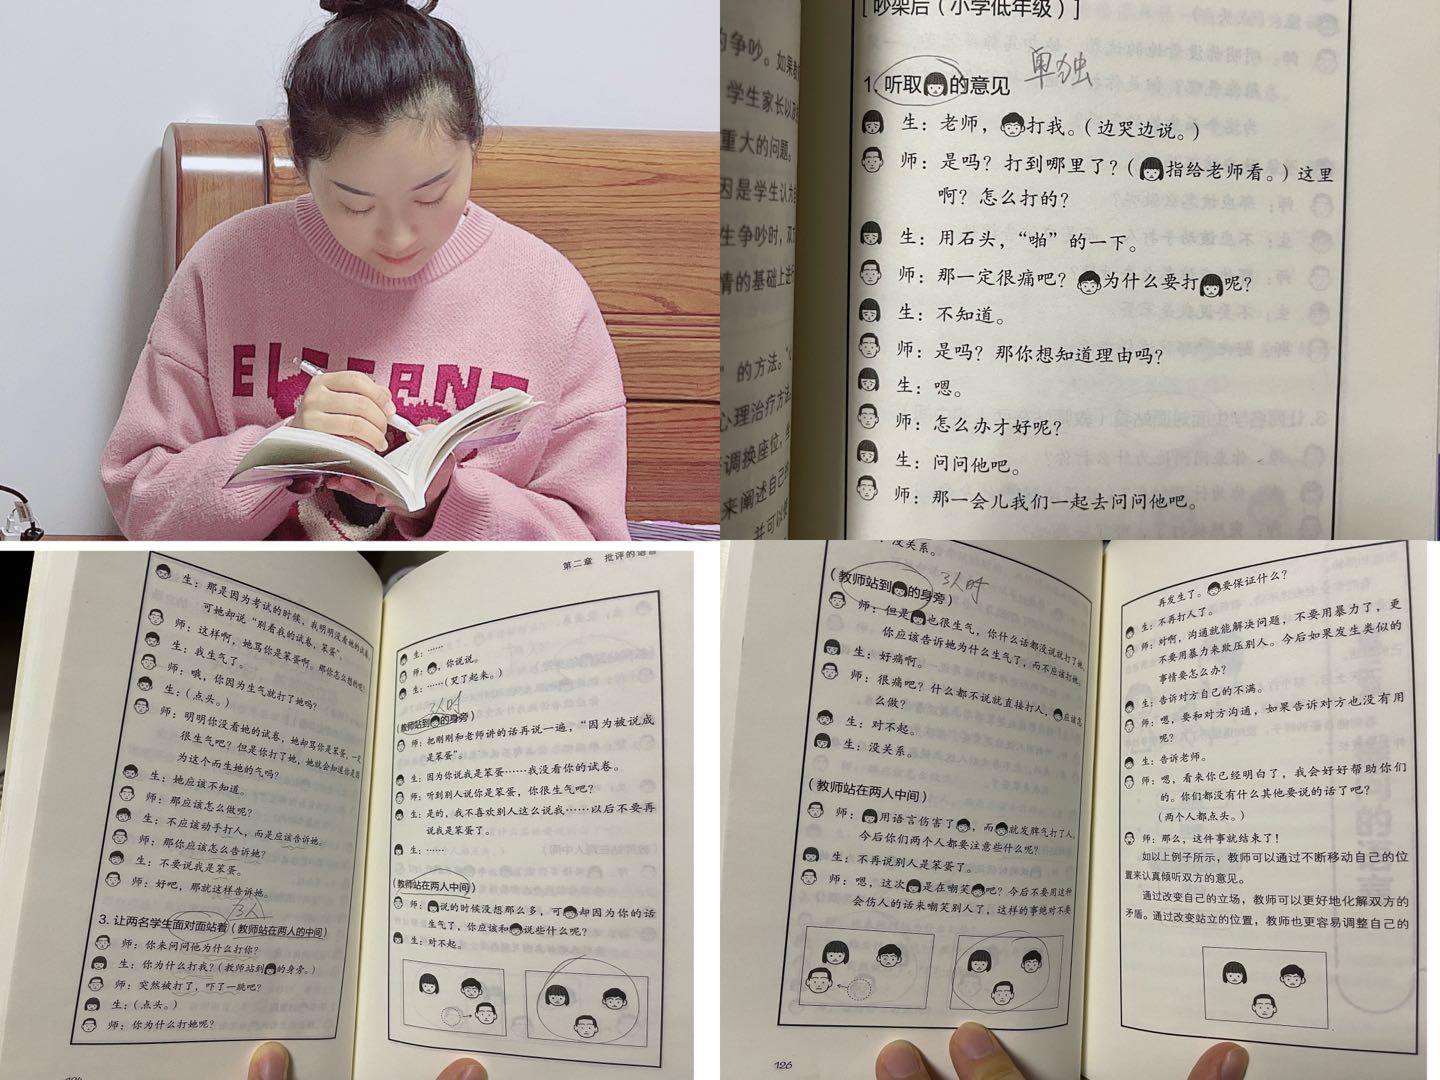 EL
ANT
[吵架后（小学低年级）]
单独
1. 听取的意见
生：老师，打我。（边哭边说。）
师：是吗？打到哪里了？（指给老师看。）这里
啊？怎么打的？
生：用石头，“啪”的一下。
师：那一定很痛吧？为什么要打呢？
生：不知道。
师：是吗？那你想知道理由吗？
生：嗯。
师：怎么办才好呢？
生：问问他吧。
师：那一会儿我们一起去问问他吧。
争吵。如果
学生家长以
重大的问题。
因是学生认为
生争吵时，双
情的基础上进行
”的方法。
心理治疗方法
调换座位，
来阐述自己的
并可以
生：那是因为考试的时候，我明明没看她的试卷，
可她却说“别看我的试卷，笨蛋”。
师：这样啊，她骂你是笨蛋啊。那你怎么想的呢？
生：我生气了。
师：哦，你因为生气就打了她吗？
生：（点头。）
师：明明你没看她的试卷，她却骂你是笨蛋，一定
很生气吧？但是你打了她，她就会知道你是因
为这个而生她的气吗？
生：她应该不知道。
师：那应该怎么做呢？
生：不应该动手打人，而是应该告诉她。
师：那你应该怎么告诉她？
生：不要说我是笨蛋。
师：好吧，那就这样告诉她。
3人
3. 让两名学生面对面站着（教师站在两人的中间）
师：你来问问他为什么打你？
生：你为什么打我？（教师站到的身旁。）
师：突然被打了，吓了一跳吧？
生：（点头。）
师：你为什么打她呢？
第二章 批评的语言
生：……
师：，你说说。
生：……（哭了起来。）
3人时
（教师站到的身旁）
师：把刚刚和老师讲的话再说一遍，“因为被说成
是笨蛋”。
生：因为你说我是笨蛋……我没看你的试卷。
师：听到别人说你是笨蛋，你很生气吧？
生：是的，我不喜欢别人这么说我……以后不要再
说我是笨蛋了。
生：……
（教师站在两人中间）
师：说的时候没想那么多，可却因为你的话
生气了，你应该和说些什么呢？
生：对不起。
没关系。
3人时
（教师站到的身旁）
师：但是也很生气，你什么话都没说就打了她，
你应该告诉她为什么生气了，而不应该打她。
生：好痛啊。
师：很痛吧？什么都不说就直接打人，应该怎
么做？
生：对不起。
生：没关系。
（教师站在两人中间）
师：用语言伤害了，而就发脾气打了人。
今后你们两个人都要注意些什么呢？
生：不再说别人是笨蛋了。
师：嗯，这次是在嘲笑吧？今后不要用这种
会伤人的话来嘲笑别人了，这样的事绝对不要
126
再发生了。要保证什么？
生：不再打人了。
师：对啊，沟通就能解决问题，不要用暴力了，更
不要用暴力来欺压别人。今后如果发生类似的
事情要怎么办？
生：告诉对方自己的不满。
师：嗯，要和对方沟通，如果告诉对方也没有用
呢？
生：告诉老师。
师：嗯，看来你已经明白了，我会好好帮助你们
的。你们都没有什么其他要说的话了吧？
（两个人都点头。）
师：那么，这件事就结束了！
如以上例子所示，教师可以通过不断移动自己的位
置来认真倾听双方的意见。
通过改变自己的立场，教师可以更好地化解双方的
矛盾。通过改变站立的位置，教师也更容易调整自己的